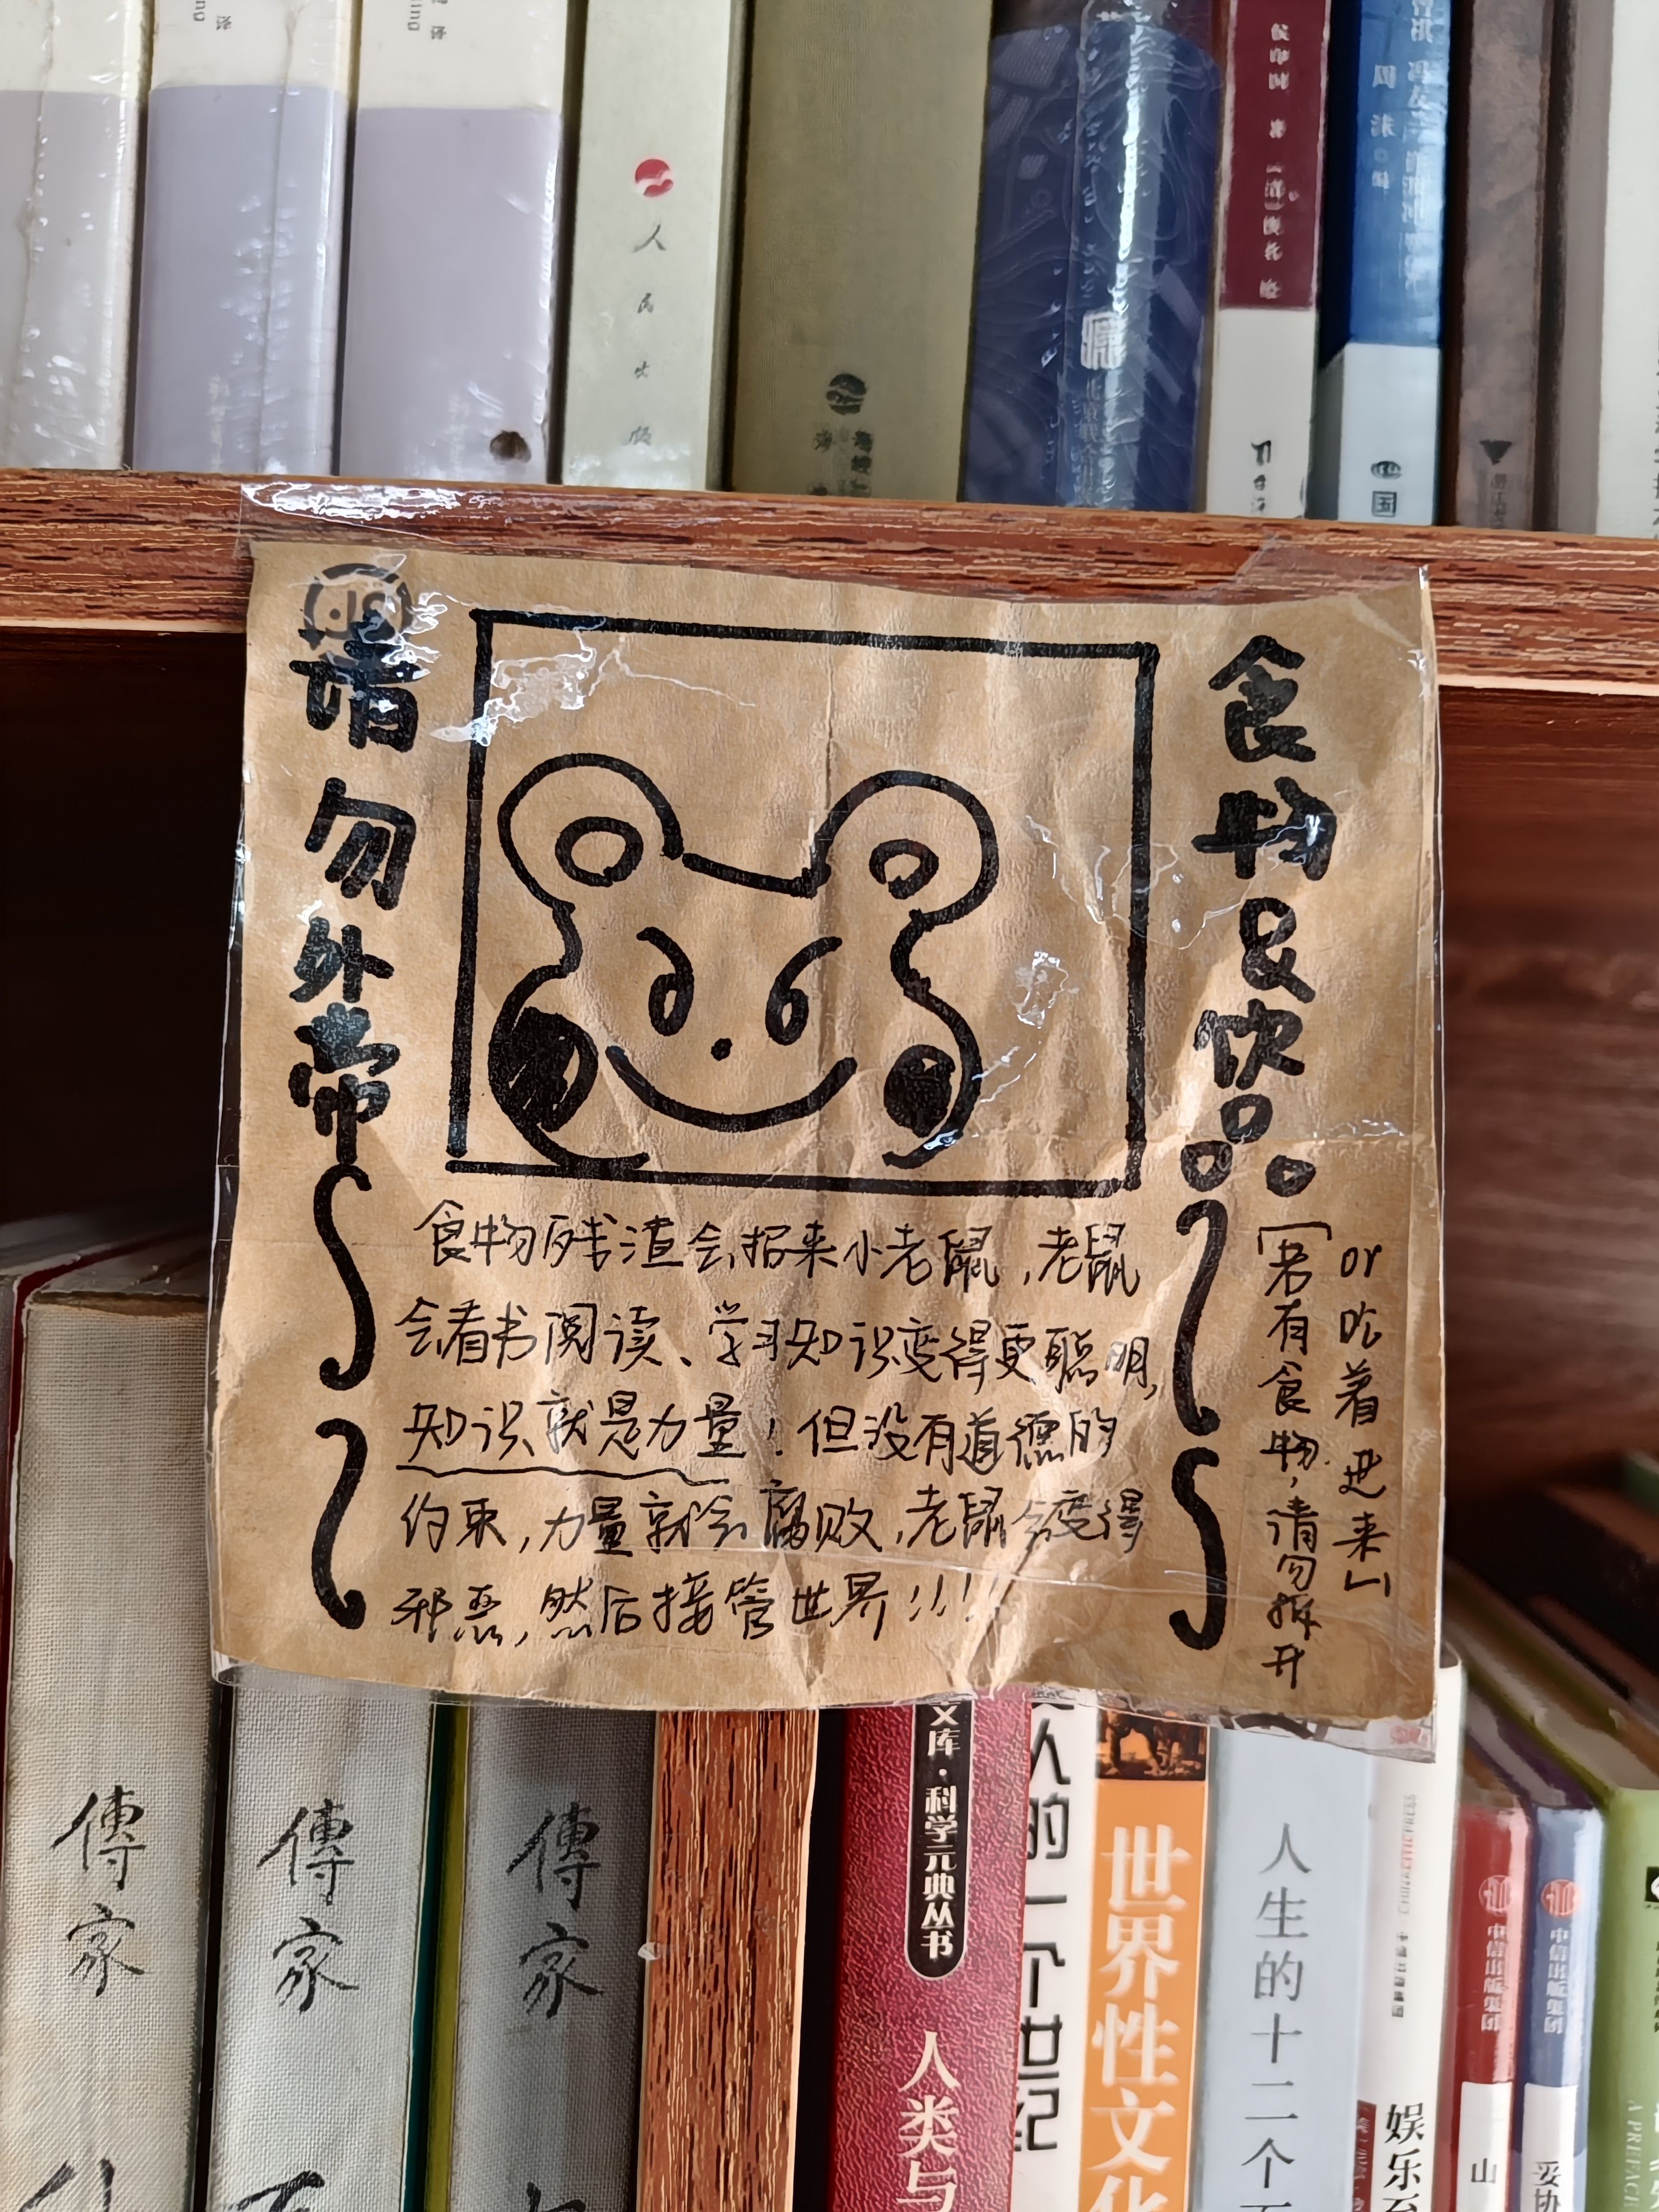 人民出版
海峡
国
请勿外带
食物及饮品
食物残渣会招来小老鼠，老鼠
会看书阅读、学习知识变得更聪明，
知识就是力量！但没有道德的
约束，力量就会腐败，老鼠会变得
邪恶，然后接管世界！！！
「若有食物，请勿拆开
or吃着进来」
傳家
傳家
傳家
文库·科学元典丛书
人类与
人的一个世纪
世界性文化
人生的十二个
娱乐至
中信出版集团
山
中信出版集团
妥协
A PREFACE